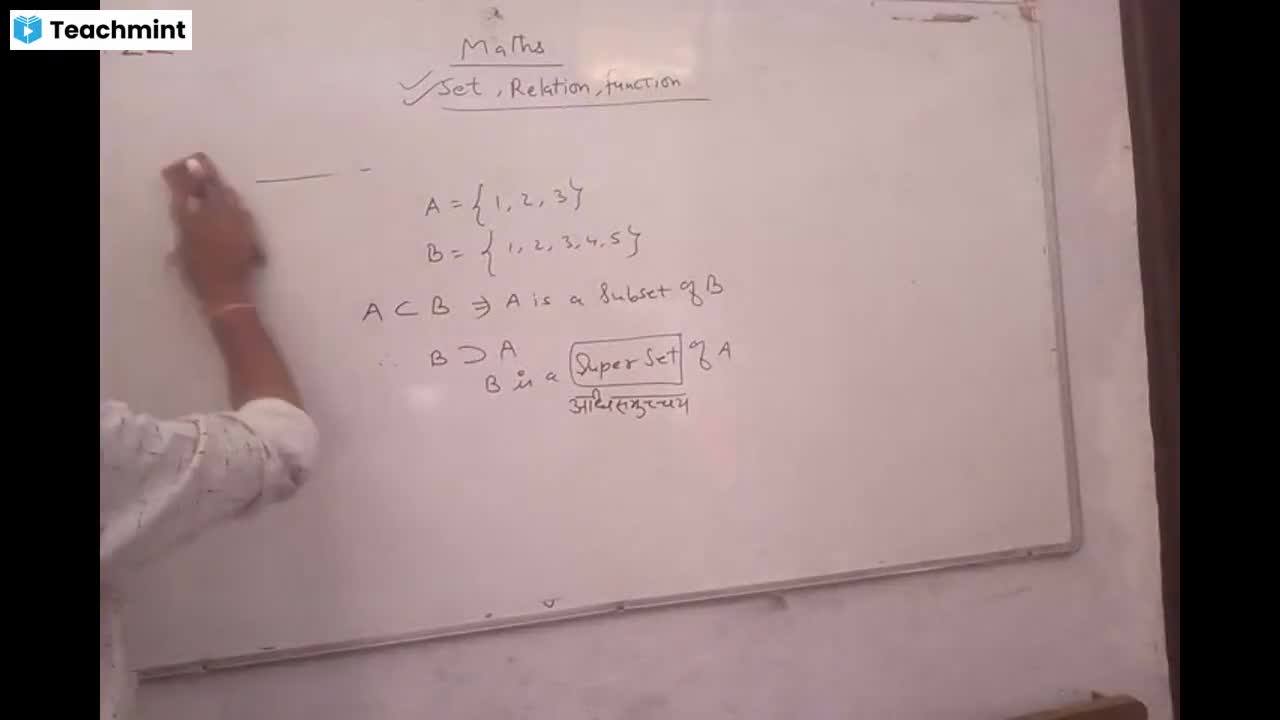 Teachmint
Maths
✓ Set, Relation, function
A = { 1, 2, 3 }
B = { 1, 2, 3, 4, 5 }
A ⊂ B ⇒ A is a Subset of B
∴ B ⊃ A
B is a Super Set of A
अधिसमुच्चय